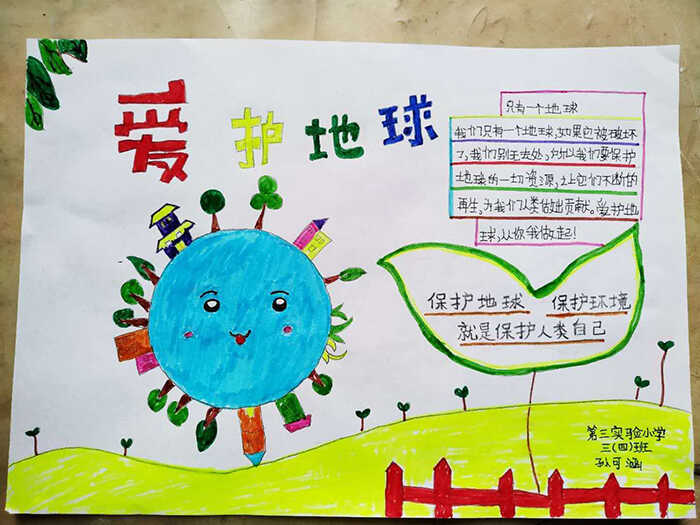 爱护地球
只有一个地球
我们只有一个地球,如果它被破坏
了,我们别无去处,所以我们要保护
地球的一切资源,让它们不断的
再生,为我们人类做出贡献。爱护地
球,从你我做起!
保护地球 保护环境
就是保护人类自己
第三实验小学
三(四)班
孙可涵